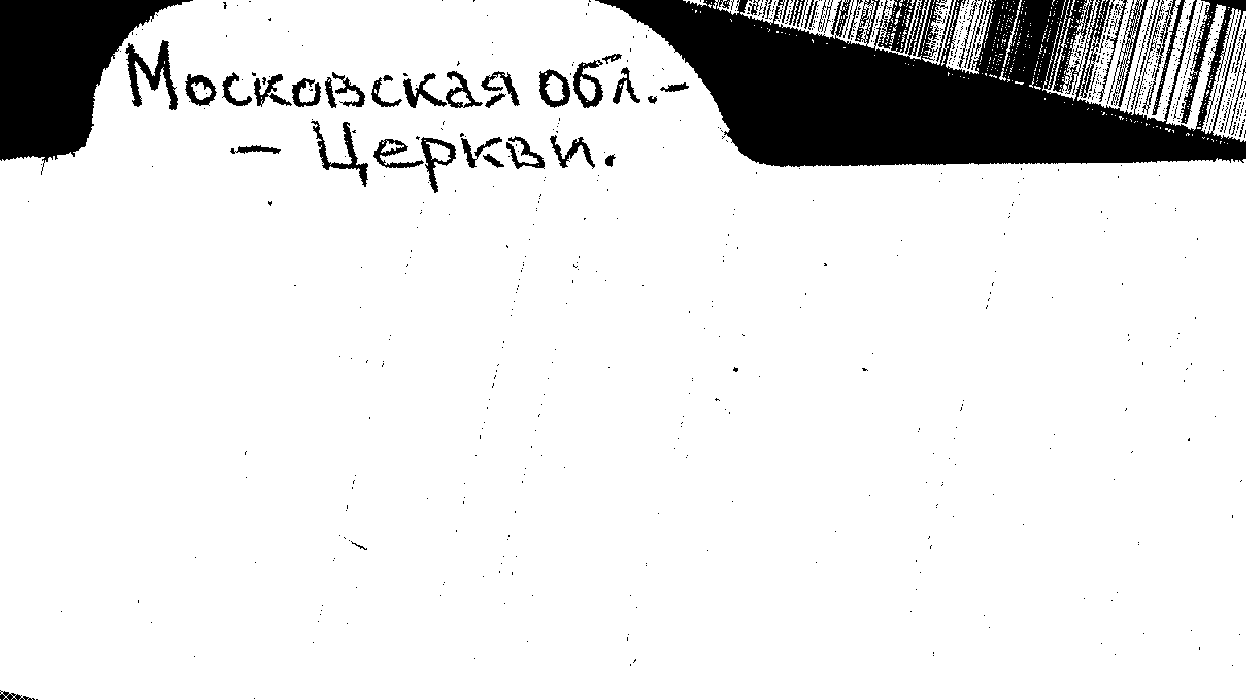 Московская обл.-
- Церкви.